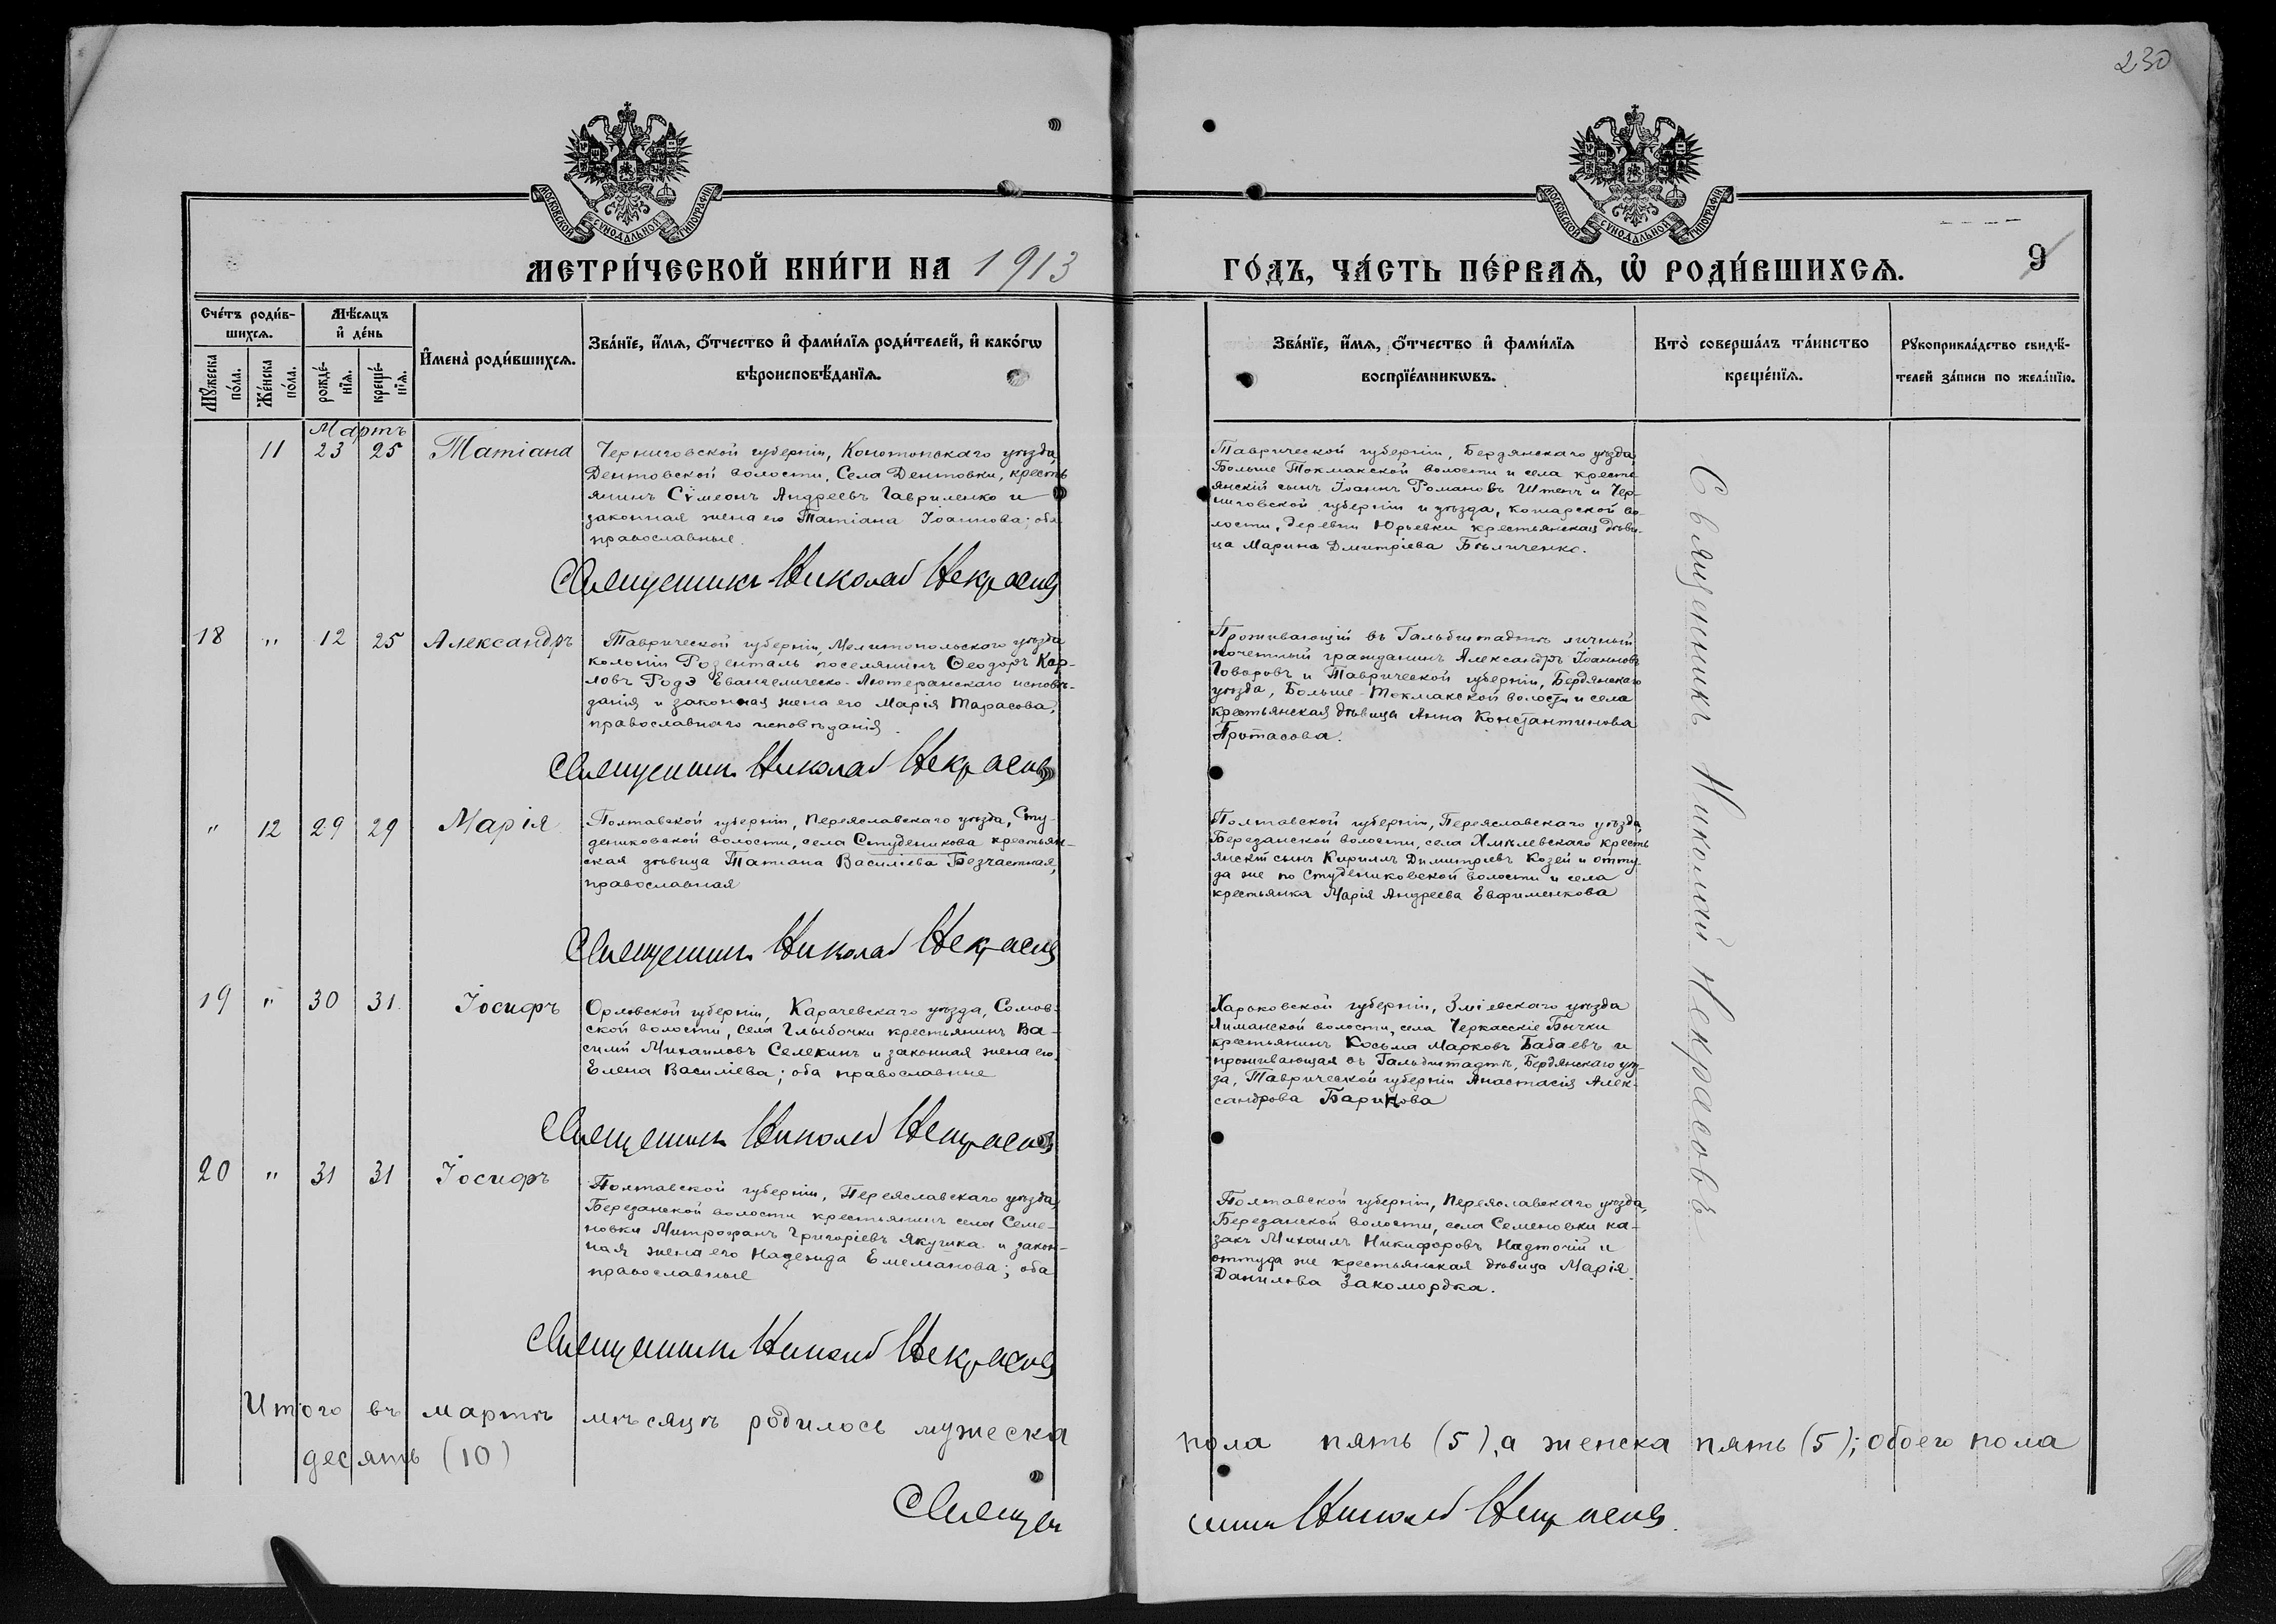 230
МОСКОВСКОЙ СѴНОДАЛЬНОЙ ТИПОГРАФІИ
МОСКОВСКОЙ СѴНОДАЛЬНОЙ ТИПОГРАФІИ
МЕТРИ́ЧЕСКОЙ КНИ́ГИ НА 1913
ГО́ДЪ, ЧА́СТЬ ПЕ́РВАѦ, Ѡ҆ РОДИ́ВШИХСѦ.
9
Сче́тъ роди́в-
шихсѧ.
Мꙋ́жеска
по́ла.
Же́нска
по́ла.
Мѣ́сѧцъ
и҆ де́нь
рожде́-
нїѧ.
креще́-
нїѧ.
И҆мена̀ роди́вшихсѧ.
Зва́нїе, и҆́мѧ, ѻ҆́тчество и҆ фами́лїѧ роди́телей, и҆ како́гѡ
вѣроисповѣ́данїѧ.
Зва́нїе, и҆́мѧ, ѻ҆́тчество и҆ фами́лїѧ
воспрїе́мникѡвъ.
Кто̀ соверша́лъ та́инство
креще́нїѧ.
Рꙋкоприкла́дство свидѣ́-
телей за́писи по жела́нїю.
Мартъ
11 23 25 Татіана
Черниговской губерніи, Конотопскаго уѣзда,
Дептовской волости, Села Дептовки, кресть
янинъ Сѵмеонъ Андреевъ Гавриленко и
законная жена его Татіана Іоаннова; оба
православные.
Священникъ Николай Некрасовъ
Таврической губерніи, Бердянскаго уѣзда,
Больше Токмакской волости и села кресть
янскій сынъ Іоаннъ Романовъ Штепъ и Чер-
ниговской губерніи и уѣзда, во-
лости, деревни Юрьевки крестьянская дѣви-
ца Марина Дмитріева Бѣличенко.
18 " 12 25 Александръ
Таврической губерніи, Мелитопольского уѣзда
колоніи Розенталь поселянинъ Ѳеодоръ Кар-
ловъ Родэ Евангелическо-Лютеранскаго исповѣ-
данія и законная жена его Марія Тарасова,
православнаго исповѣданія.
Священникъ Николай Некрасовъ
Проживающій въ Гальбштадтѣ личный
почетный гражданинъ Александръ Іоанновъ
Говоровъ и Таврической губерніи, Бердянскаго
уѣзда, Больше-Токмакской волости и села
крестьянская дѣвица Анна Константинова
Протасова.
" 12 29 29 Марія
Полтавской губерніи, Переяславскаго уѣзда, Сту-
дениковской волости, села Студеникова крестьян-
ская дѣвица Татіана Василіева Безчастная,
православная
Священникъ Николай Некрасовъ
Полтавской губерніи, Переяславскаго уѣзда,
Березанской волости, села кресть
янскій сынъ Кириллъ Димитріевъ Козей и отту-
да же по Студениковской волости и села
крестьянка Марія Андреева Евфименкова
19 " 30 31 Іосифъ
Орловской губерніи, Карачевскаго уѣзда, Сомов-
ской волости, села Глыбочки крестьянинъ Ва-
силій Михаиловъ Селекинъ и законная жена его
Елена Василіева; оба православные
Священникъ Николай Некрасовъ
Харьковской губерніи, Зміевскаго уѣзда
Лиманской волости, села Черкасскіе Бычки
крестьянинъ Косьма Марковъ Бабаевъ и
проживающая въ Гальбштадтѣ, Бердянскаго уѣз-
да, Таврической губерніи Анастасія Алек-
сандрова Барикова
20 " 31 31 Іосифъ
Полтавской губерніи, Переяславскаго уѣзда,
Березанской волости крестьянинъ села Семе-
новки Митрофанъ Григоріевъ Якушка и закон-
ная жена его Надежда Емеліанова; оба
православные
Священникъ Николай Некрасовъ
Полтавской губерніи, Переяславскаго уѣзда,
Березанской волости, села Семеновки ка-
закъ Михаилъ Никифоровъ Надточій и
оттуда же крестьянская дѣвица Марія
Данилова Закомордка.
Священникъ Николай Некрасовъ
Итого въ мартѣ мѣсяцѣ родилось мужеска пола пять (5), а женска пять (5); обоего пола
десять (10)
Священникъ Николай Некрасовъ.